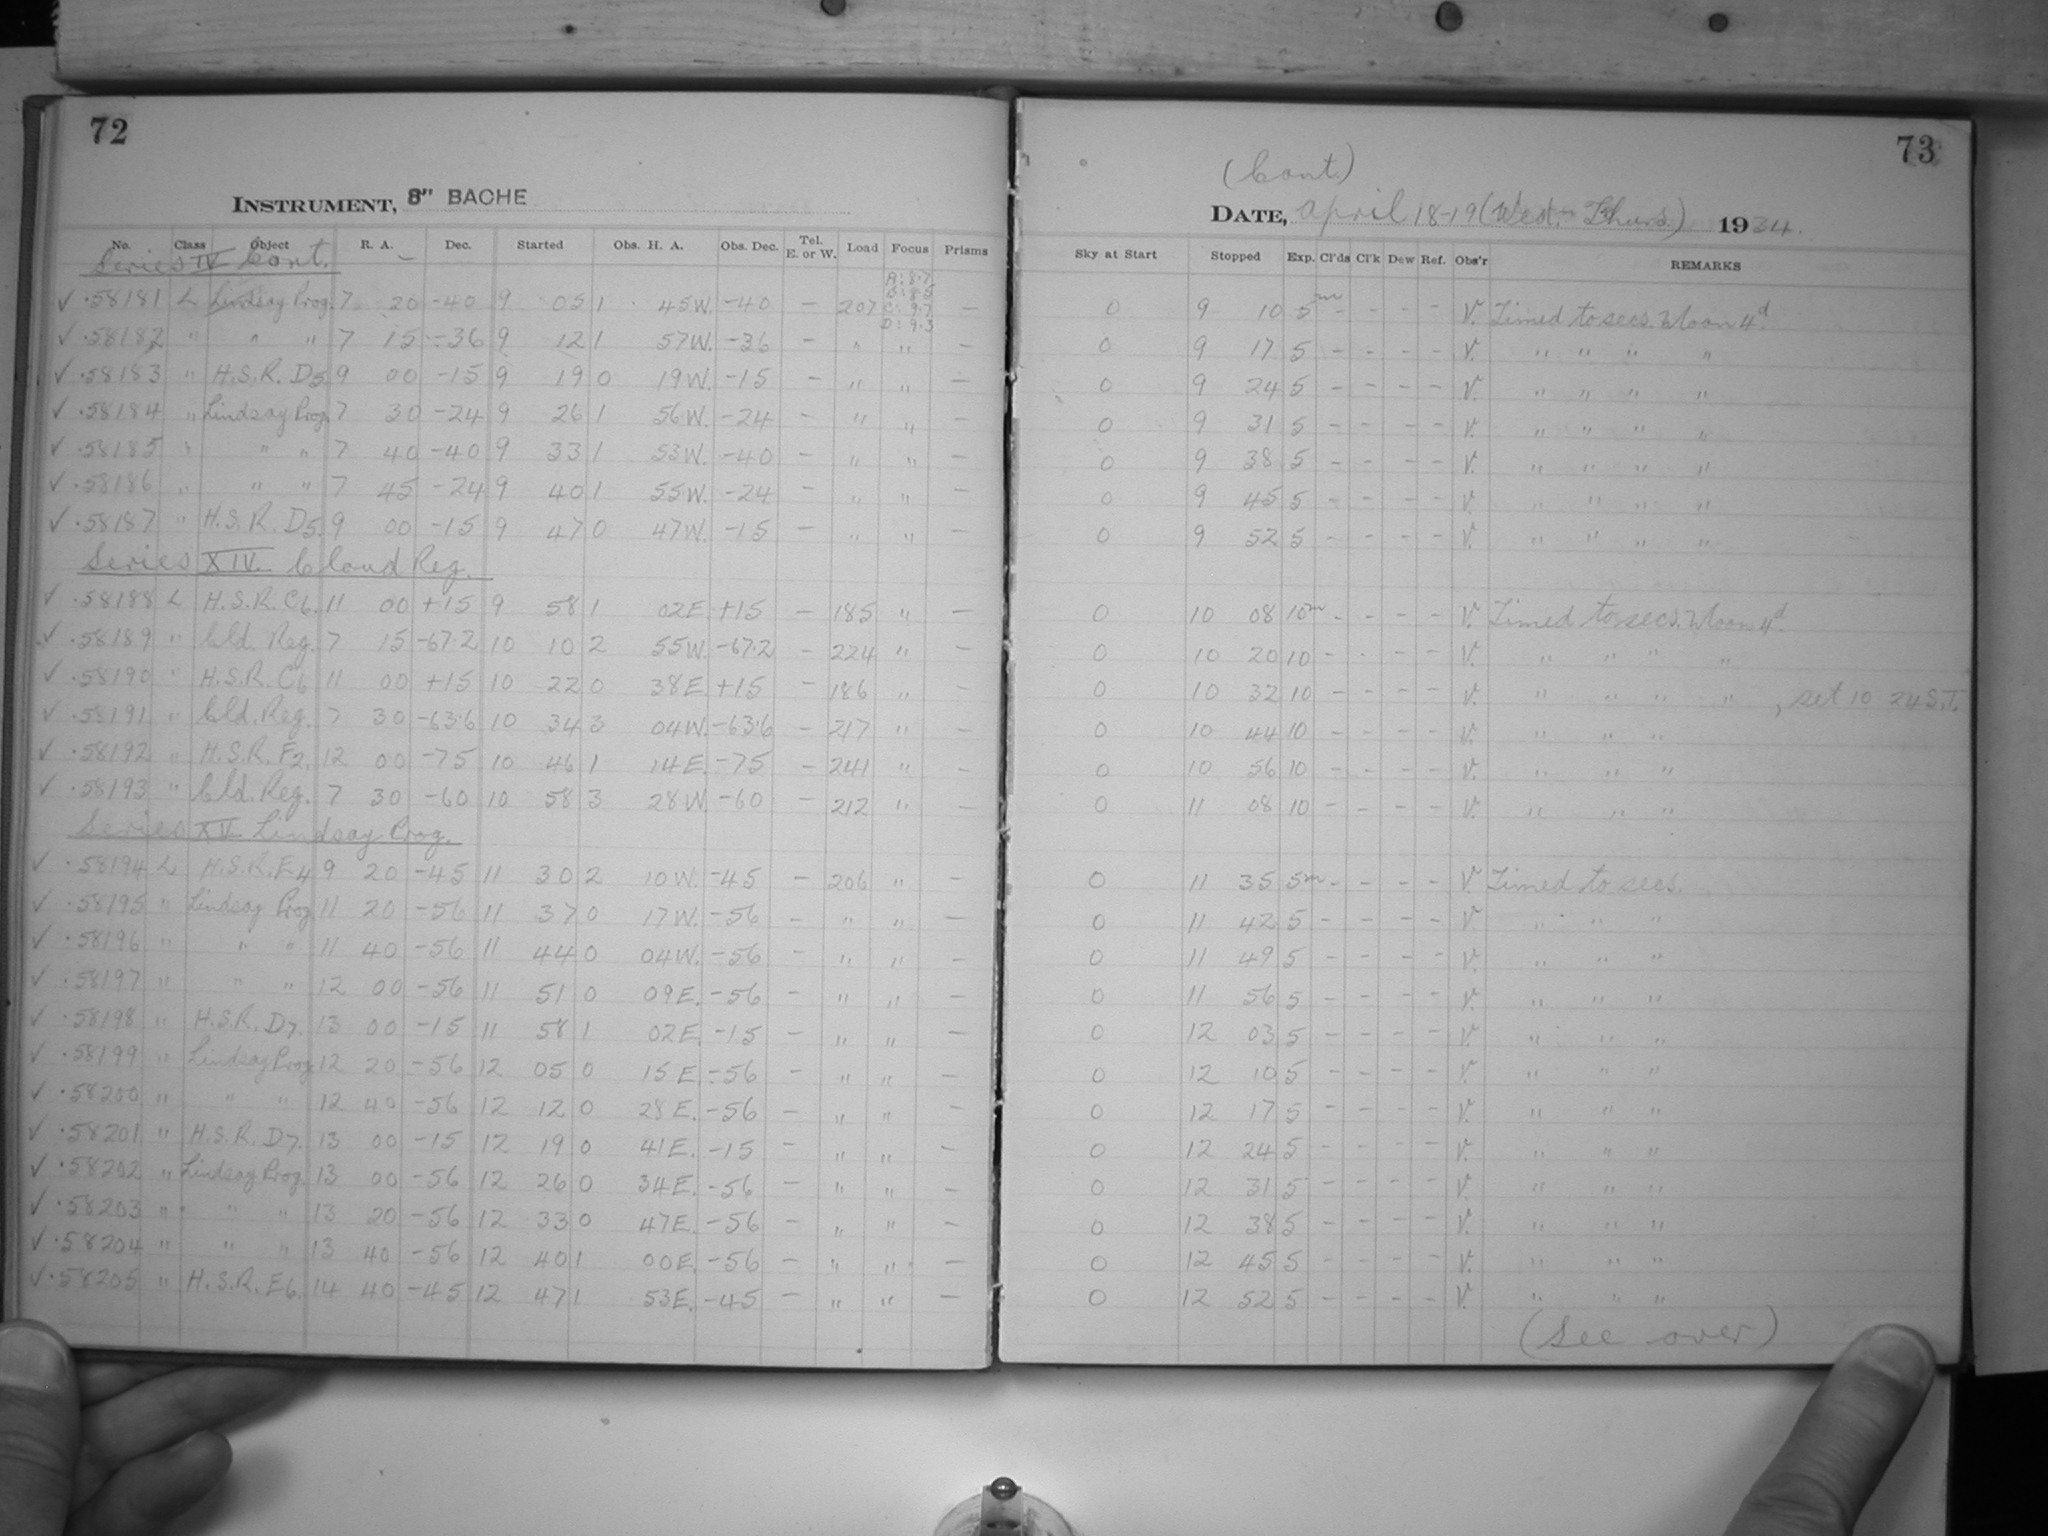 72
INSTRUMENT, 8" BACHE
No. Class Object R. A. Dec. Started Obs. H. A. Obs. Dec. Tel. E. or W. Load Focus Prisms
Series IV Cont.
A: 8.7
B: 8.5
C: 9.7
D: 9.3
✓ .58181 L Lindsay Prog. 7 20 -40 9 05 1 45W. -40 — 207 —
✓ .58182 " " " 7 15 -36 9 12 1 57W. -36 — " " —
✓ .58183 " H.S.R. D5. 9 00 -15 9 19 0 19W. -15 — " " —
✓ .58184 " Lindsay Prog. 7 30 -24 9 26 1 56W. -24 — " " —
✓ .58185 " " " 7 40 -40 9 33 1 53W. -40 — " " —
✓ .58186 " " " 7 45 -24 9 40 1 55W. -24 — " " —
✓ .58187 " H.S.R. D5. 9 00 -15 9 47 0 47W. -15 — " " —
Series XIV. Cloud Reg.
✓ .58188 L H.S.R. C6. 11 00 +15 9 58 1 02E. +15 — 185 " —
✓ .58189 " Cld. Reg. 7 15 -67.2 10 10 2 55W. -67.2 — 224 " —
✓ .58190 " H.S.R. C6 11 00 +15 10 22 0 38E. +15 — 186 " —
✓ .58191 " Cld. Reg. 7 30 -63.6 10 34 3 04W. -63.6 — 217 " —
✓ .58192 " H.S.R. F2. 12 00 -75 10 46 1 14E. -75 — 241 " —
✓ .58193 " Cld. Reg. 7 30 -60 10 58 3 28W. -60 — 212 " —
Series XV Lindsay Prog.
✓ .58194 L H.S.R. E4 9 20 -45 11 30 2 10W. -45 — 206 " —
✓ .58195 " Lindsay Prog. 11 20 -56 11 37 0 17W. -56 — " " —
✓ .58196 " " " 11 40 -56 11 44 0 04W. -56 — " " —
✓ .58197 " " " 12 00 -56 11 51 0 09E. -56 — " " —
✓ .58198 " H.S.R. D7. 13 00 -15 11 58 1 02E. -15 — " " —
✓ .58199 " Lindsay Prog 12 20 -56 12 05 0 15E. -56 — " " —
✓ .58200 " " " 12 40 -56 12 12 0 28E. -56 — " " —
✓ .58201 " H.S.R. D7. 13 00 -15 12 19 0 41E. -15 — " " —
✓ .58202 " Lindsay Prog. 13 00 -56 12 26 0 34E. -56 — " " —
✓ .58203 " " " 13 20 -56 12 33 0 47E. -56 — " " —
✓ .58204 " " " 13 40 -56 12 40 1 00E. -56 — " " —
✓ .58205 " H.S.R. E6. 14 40 -45 12 47 1 53E. -45 — " " —
73
(Cont.)
DATE, April 18-19 (Wed.- Thurs.) 1934.
Sky at Start Stopped Exp. Cl'ds Cl'k Dew Ref. Obs'r REMARKS
0 9 10 5m - - - - V. Timed to secs. Moon 4d.
0 9 17 5 - - - - V. " " " "
0 9 24 5 - - - - V. " " " "
0 9 31 5 - - - - V. " " " "
0 9 38 5 - - - - V. " " " "
0 9 45 5 - - - - V. " " " "
0 9 52 5 - - - - V. " " " "
0 10 08 10m - - - - V. Timed to secs. Moon 4d.
0 10 20 10 - - - - V. " " " "
0 10 32 10 - - - - V. " " " " , set 10 24 S.T.
0 10 44 10 - - - - V. " " "
0 10 56 10 - - - - V. " " "
0 11 08 10 - - - - V. " " "
0 11 35 5m - - - - V. Timed to secs.
0 11 42 5 - - - - V. " " "
0 11 49 5 - - - - V. " " "
0 11 56 5 - - - - V. " " "
0 12 03 5 - - - - V. " " "
0 12 10 5 - - - - V. " " "
0 12 17 5 - - - - V. " " "
0 12 24 5 - - - - V. " " "
0 12 31 5 - - - - V. " " "
0 12 38 5 - - - - V. " " "
0 12 45 5 - - - - V. " " "
0 12 52 5 - - - - V. " " "
(See over)